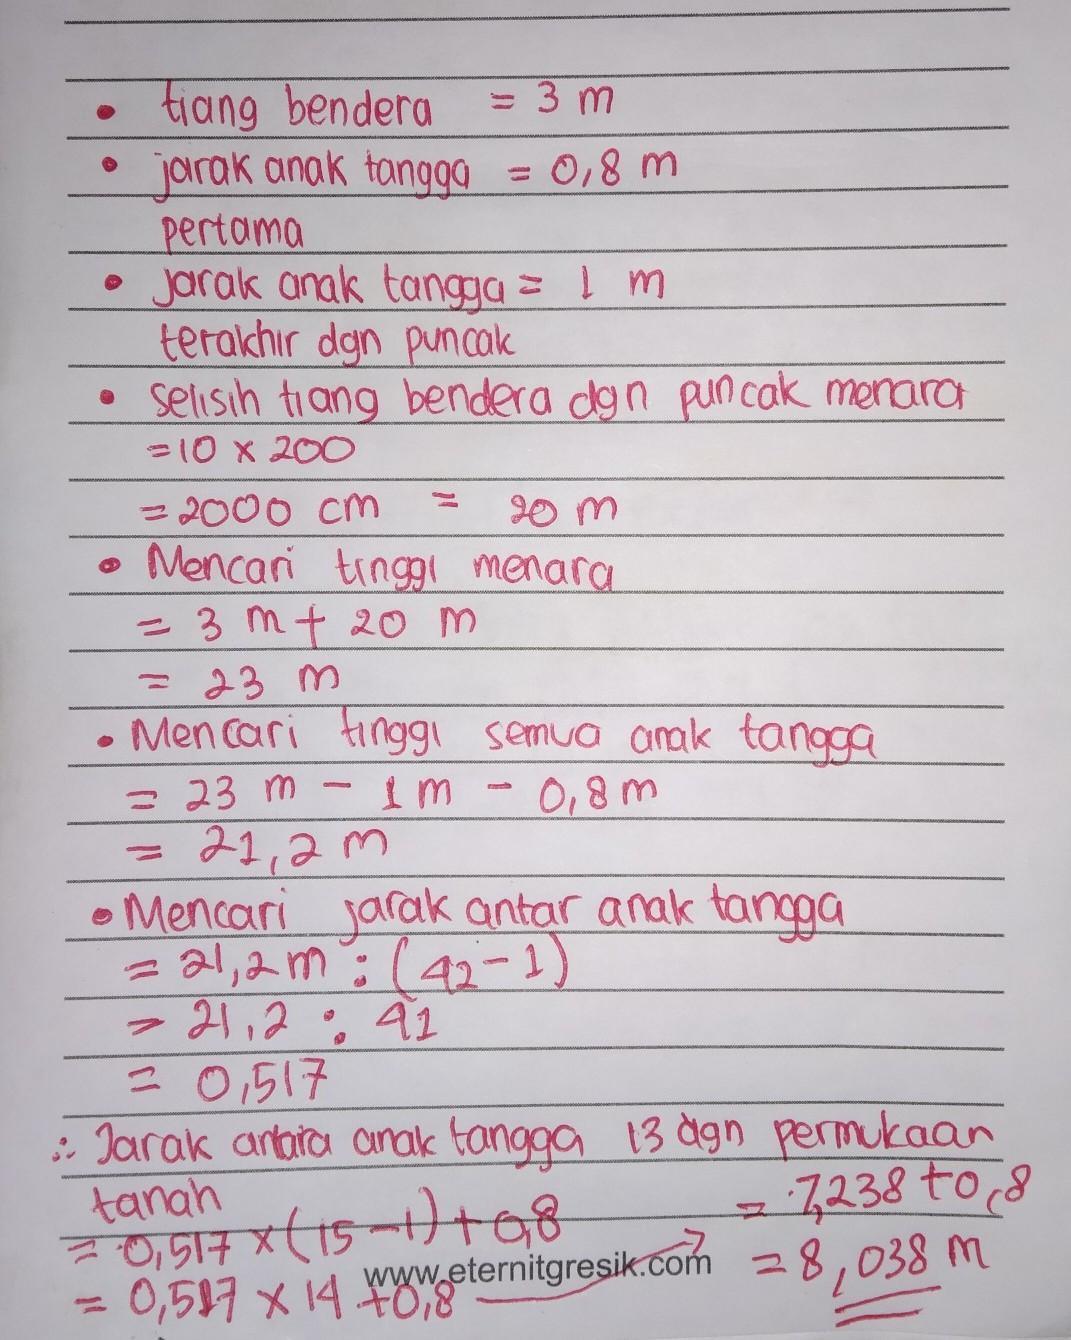 • tiang bendera = 3 m
• jarak anak tangga = 0,8 m
pertama
• jarak anak tangga = 1 m
terakhir dgn puncak
• selisih tiang bendera dgn puncak menara
= 10 x 200
= 2000 cm = 20 m
• Mencari tinggi menara
= 3 m + 20 m
= 23 m
• Mencari tinggi semua anak tangga
= 23 m - 1 m - 0,8 m
= 21,2 m
• Mencari jarak antar anak tangga
= 21,2 m : (42-1)
= 21,2 : 41
= 0,517
∴ Jarak antara anak tangga 13 dgn permukaan
tanah
= 0,517 x (15-1) + 0,8
= 0,517 x 14 + 0,8
= 7,238 + 0,8
= 8,038 m
www.eternitgresik.com